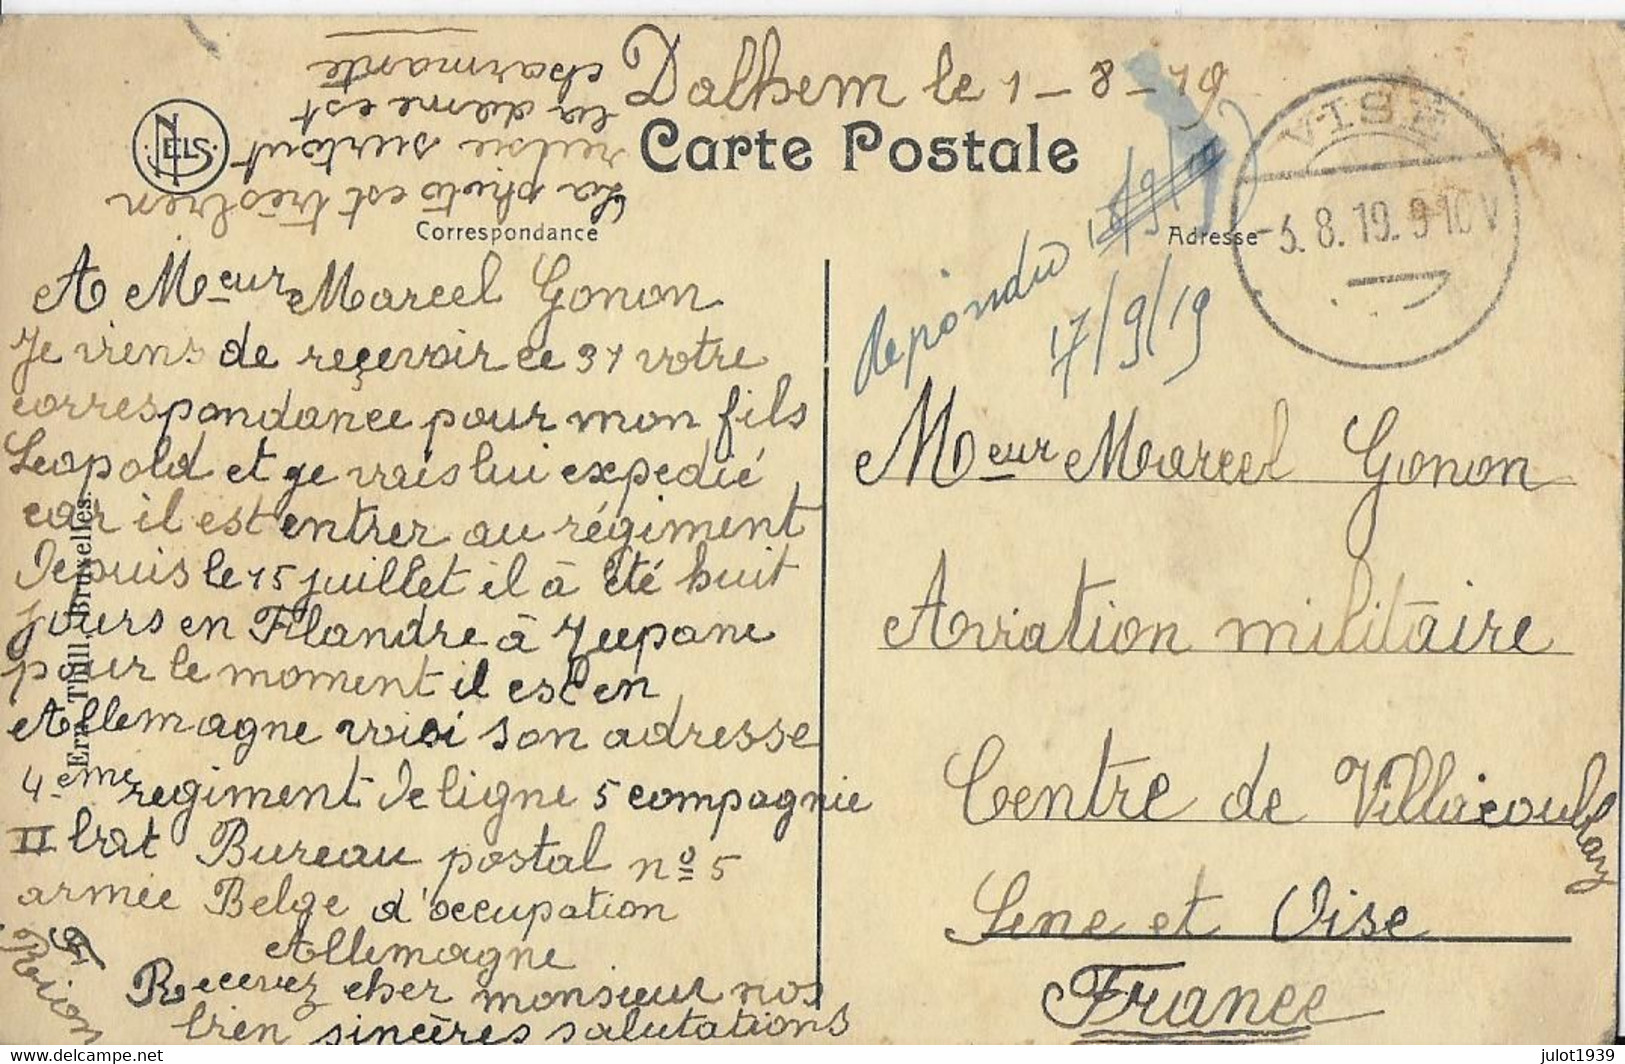 Dalhem le 1-8-19
La photo est très bien
reusie surtout
la dame est
charmante
NELS
Carte Postale
Correspondance
Adresse
VISÉ
-5.8.19.9-10V
Repondu
17/9/19
A Meur Marcel Gonon
Je viens de reçevoir ce 31 votre
correspondance pour mon fils
Leopold et ge vais lui expedié
car il est entrer au régiment
Depuis le 15 juillet il à été huit
jours en Flandre à
pour le moment il est en
Allemagne voici son adresse
4eme regiment De ligne 5 compagnie
II bat Bureau postal nº 5
armée Belge d'occupation
Allemagne
Recevez cher monsieur nos
bien sincères salutations
Ern. Thill. Bruxelles.
Meur Marcel Gonon
Aviation militaire
Centre de Villacoublay
Sene et Oise
France
delcampe.net
julot1939